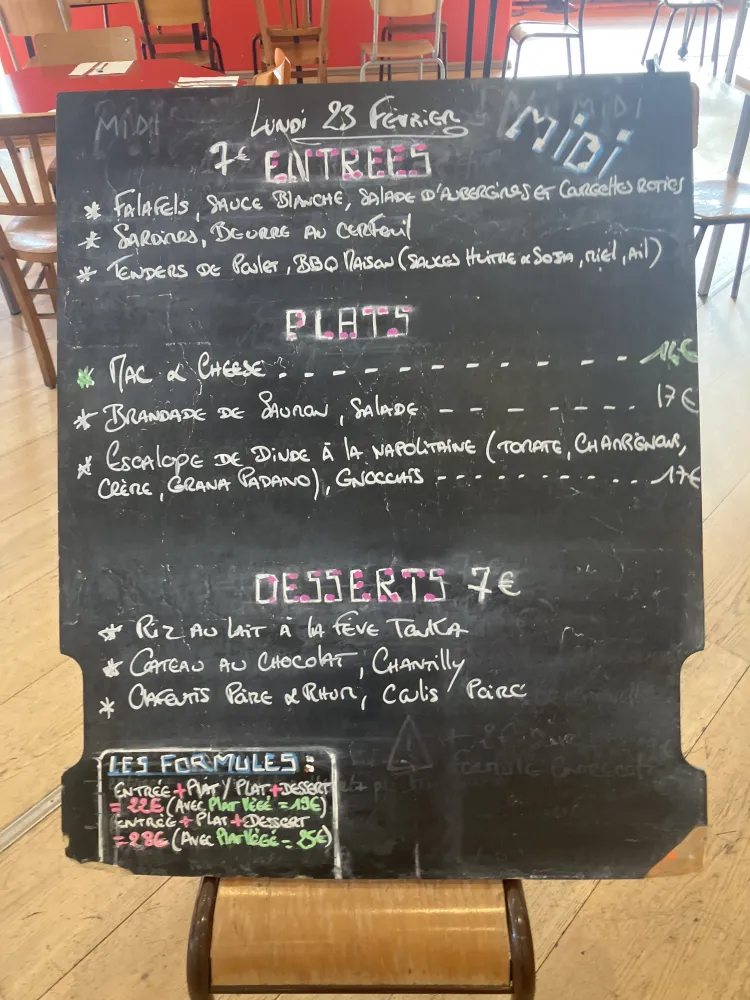 MIDI
LUNDI 23 FÉVRIER
MIDI
7€ ENTREES
* FALAFELS, SAUCE BLANCHE, SALADE D'AUBERGINES ET COURGETTES ROTIES
* SARDINES, BEURRE AU CERFEUIL
* TENDERS DE POULET, BBQ MAISON (SAUCES HUITRE & SOJA, MIEL, AIL)
PLATS
* MAC & CHEESE - - - - - - - - - - - 14€
* BRANDADE DE SAUMON, SALADE - - - - - - 17€
* ESCALOPE DE DINDE À LA NAPOLITAINE (TOMATE, CHAMPIGNONS,
CRÈME, GRANA PADANO), GNOCCHIS - - - - - - - - - - 17€
DESSERTS 7€
* RIZ AU LAIT À LA FÈVE TONKA
* GATEAU AU CHOCOLAT, CHANTILLY
* CLAFOUTIS POIRE & RHUM, COULIS POIRE
LES FORMULES :
ENTRÉE + PLAT / PLAT + DESSERT
= 22€ (AVEC PLAT VÉGÉ = 19€)
ENTRÉE + PLAT + DESSERT
= 28€ (AVEC PLAT VÉGÉ = 25€)